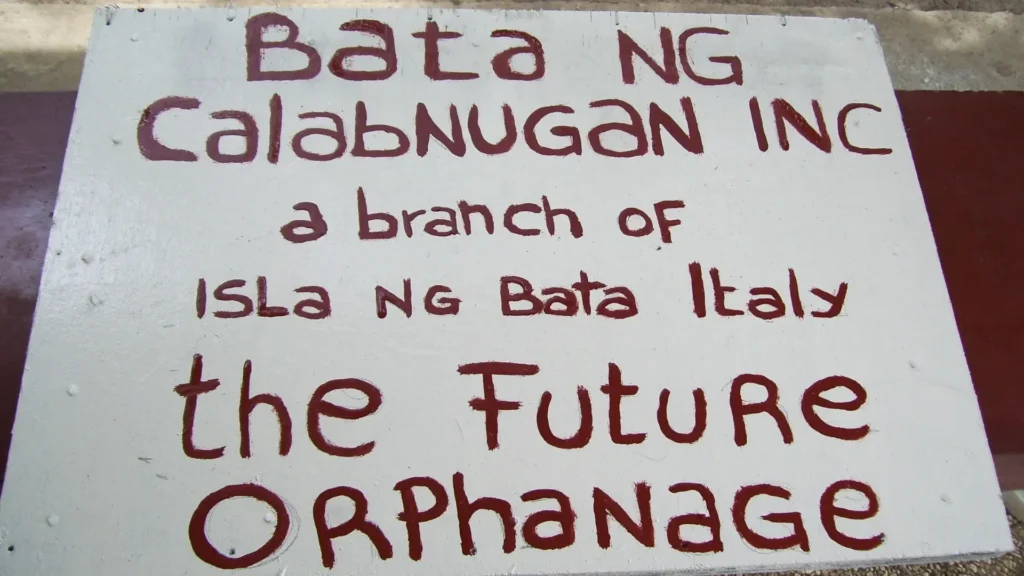 Bata NG
CalabNUGaN INC
a branch of
ISLa NG Bata Italy
the FutuRe
ORPhaNaGe